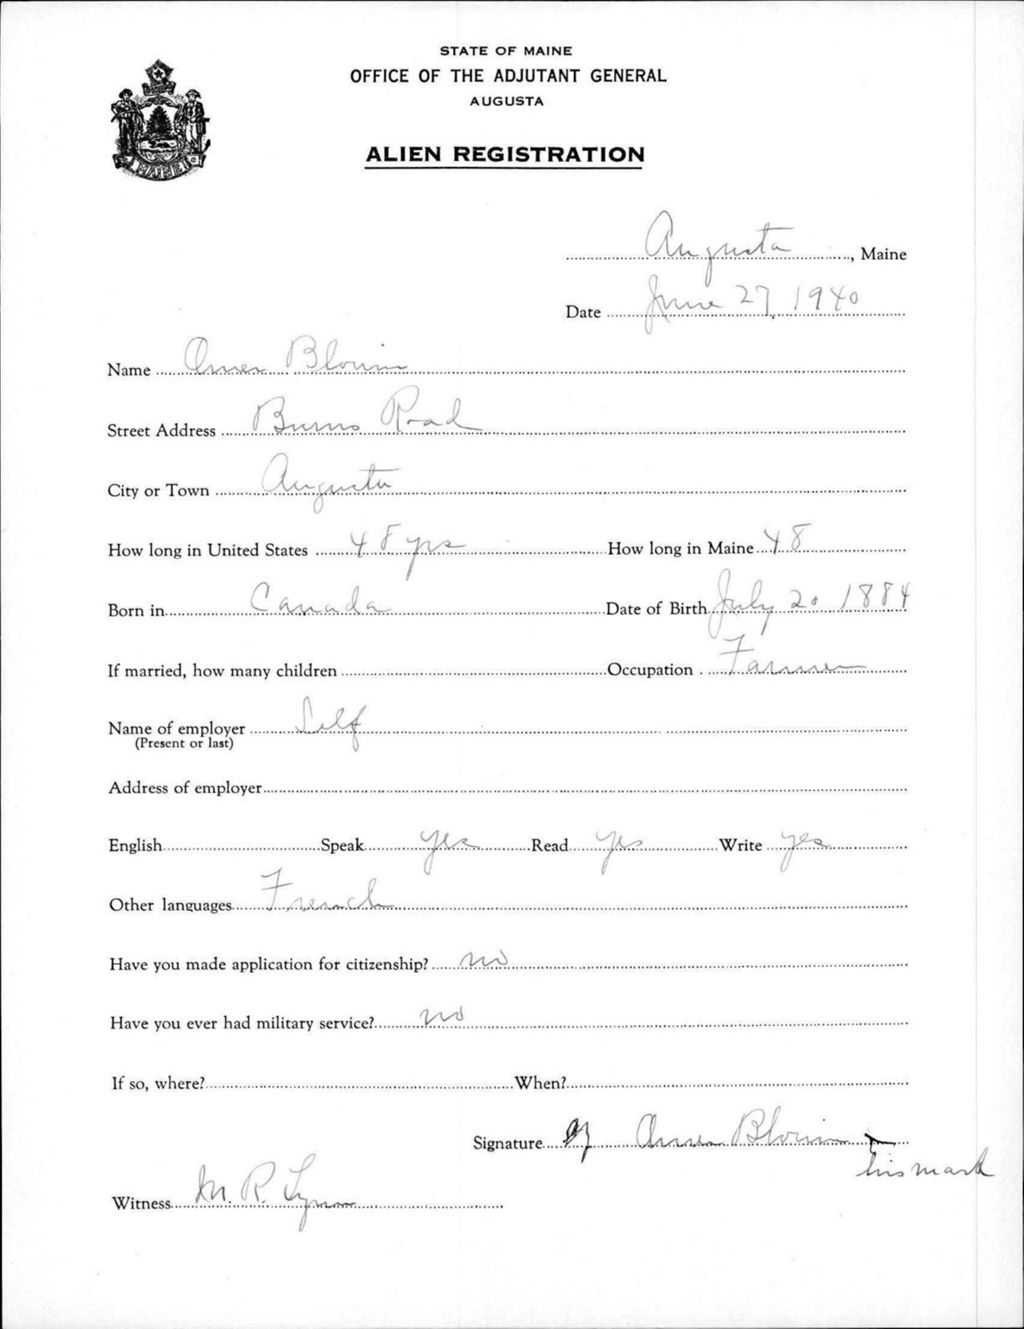 STATE OF MAINE
OFFICE OF THE ADJUTANT GENERAL
AUGUSTA
ALIEN REGISTRATION
MAINE
Augusta, Maine
Date June 27, 1940
Name Omer Blouin
Street Address Burns Road
City or Town Augusta
How long in United States 48 yrs How long in Maine 48
Born in Canada Date of Birth July 20 1884
If married, how many children Occupation Farmer
Name of employer Self
(Present or last)
Address of employer
English Speak yes Read yes Write yes
Other languages French
Have you made application for citizenship? no
Have you ever had military service? no
If so, where? When?
Signature Omer Blouin
his mark
Witness M. R. Lynn